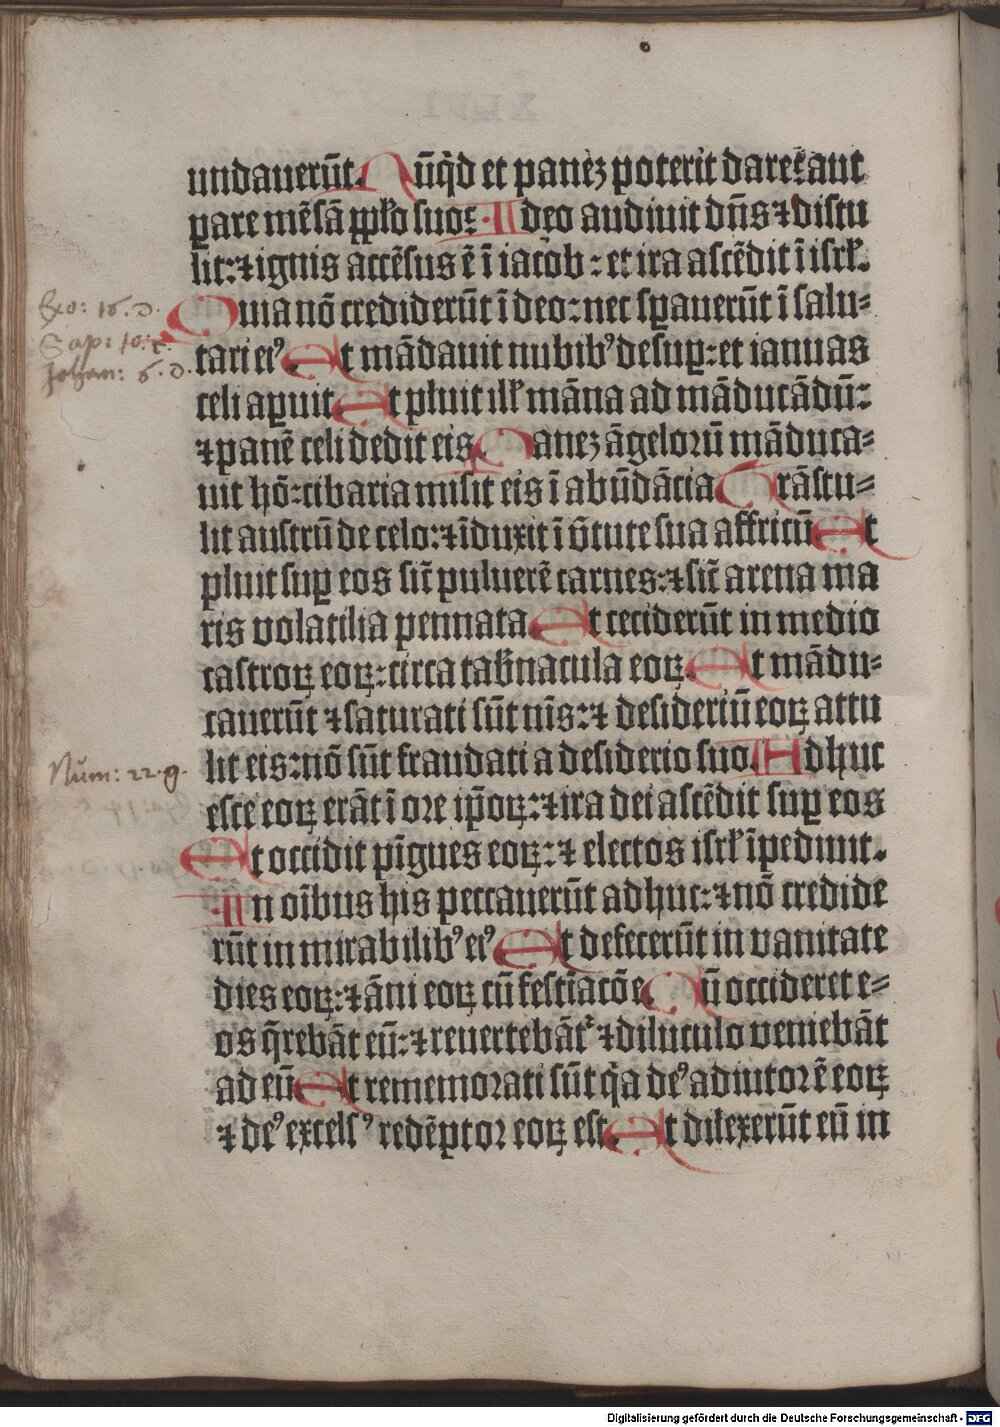 undauerūt. Nūq̇d et panēꝫ poterit dare: aut
ꝑare mēsā ꝓplo suo: Ideo audiuit dn̄s ⁊ distu
lit: ⁊ ignis accēsus ē ī iacob: et ira ascēdit ī isrl̄.
Exo: 16. d.
Quia nō crediderūt ī deo: nec sꝑauerūt ī salu⸗
Sap: 10. c.
tari eiꝰ Et mādauit nubibꝰ desuꝑ: et ianuas
Johan: 6. d.
celi aꝑuit Et pluit ill̄ māna ad māducādū:
⁊ panē celi dedit eis Panēꝫ āgelorū māduca⸗
uit hō: cibaria misit eis ī abūdācia Trāstu⸗
lit austrū de celo: ⁊ īduxit ī v̄tute sua affricū Et
pluit suꝑ eos sic̄ puluerē carnes: ⁊ sic̄ arena ma
ris volatilia pennata Et ceciderūt in medio
castroꝝ eoꝝ: circa tab̄nacula eoꝝ Et mādu⸗
cauerūt ⁊ saturati sūt nīs: ⁊ desideriū eoꝝ attu
lit eis: nō sūt fraudati a desiderio suo. Adhuc
Num: 22. g.
esce eoꝝ erāt ī ore ip̄oꝝ: ⁊ ira dei ascēdit suꝑ eos
Et occidit pīgues eoꝝ: ⁊ electos isrl̄ īpediuit.
In oībus his peccauerūt adhuc: ⁊ nō credide
rūt in mirabilibꝰ eiꝰ Et defecerūt in vanitate
dies eoꝝ: ⁊ āni eoꝝ cū festīacōe Cū occideret e⸗
os q̄rebāt eū: ⁊ reuertebāt᷑ ⁊ diluculo veniebāt
ad eū Et rememorati sūt q̇a deꝰ adiutor ē eoꝝ
⁊ deꝰ excelsꝰ redēptor eoꝝ est Et dilexerūt eū in
Digitalisierung gefördert durch die Deutsche Forschungsgemeinschaft - DFG